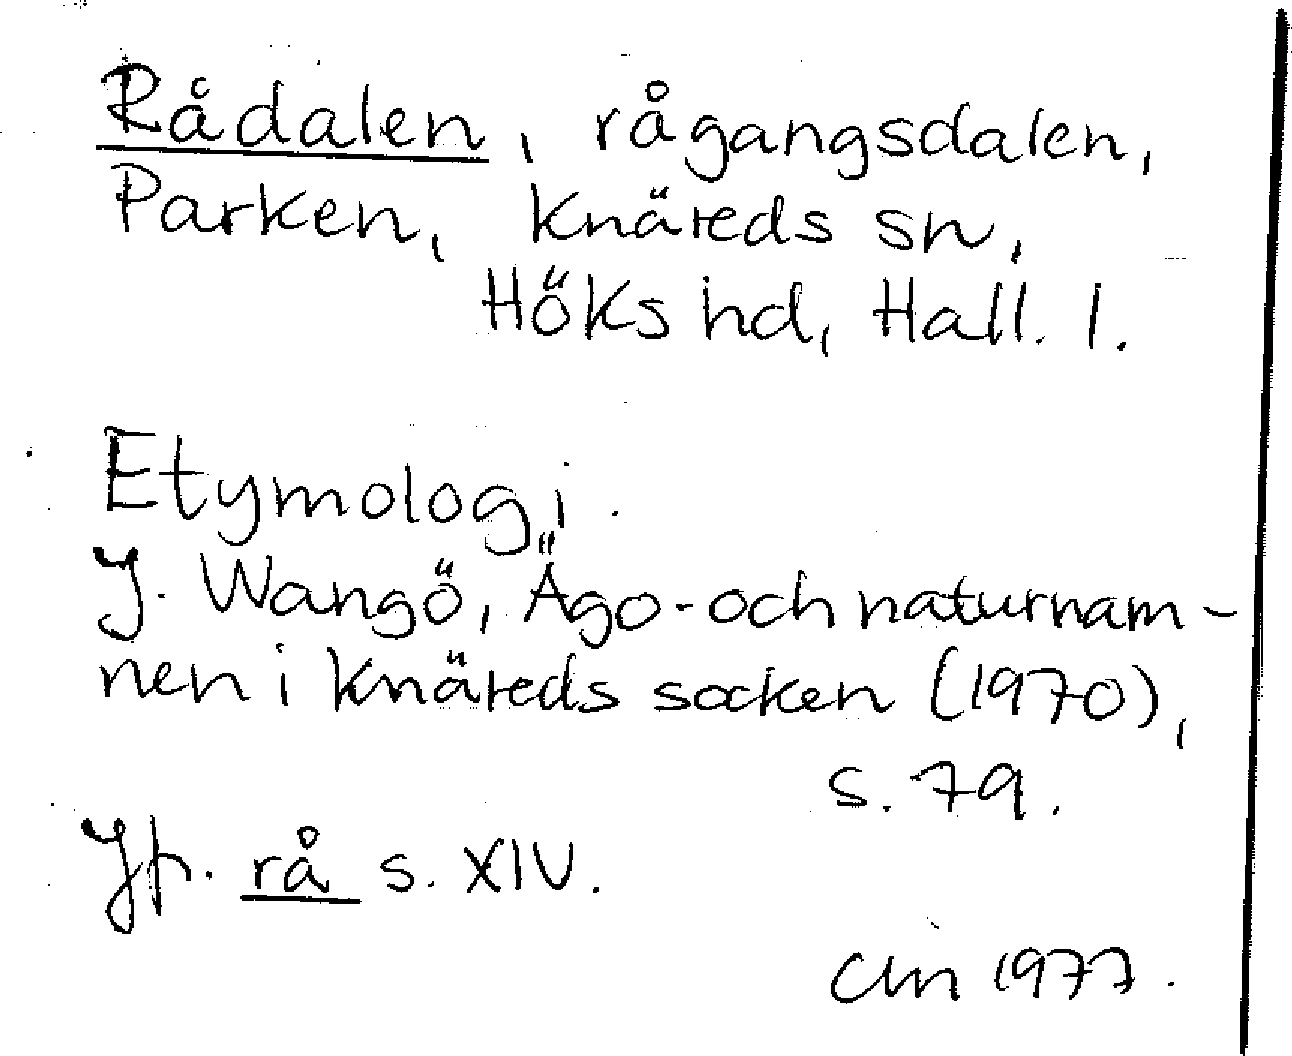 Rådalen, rågangsdalen,
Parken, Knäreds sn,
Höks hd, Hall. l.
Etymologi.
J. Wangö, Ägo- och naturnam-
nen i Knäreds socken (1970),
s. 79.
Jfr. rå s. XIV.
1977.